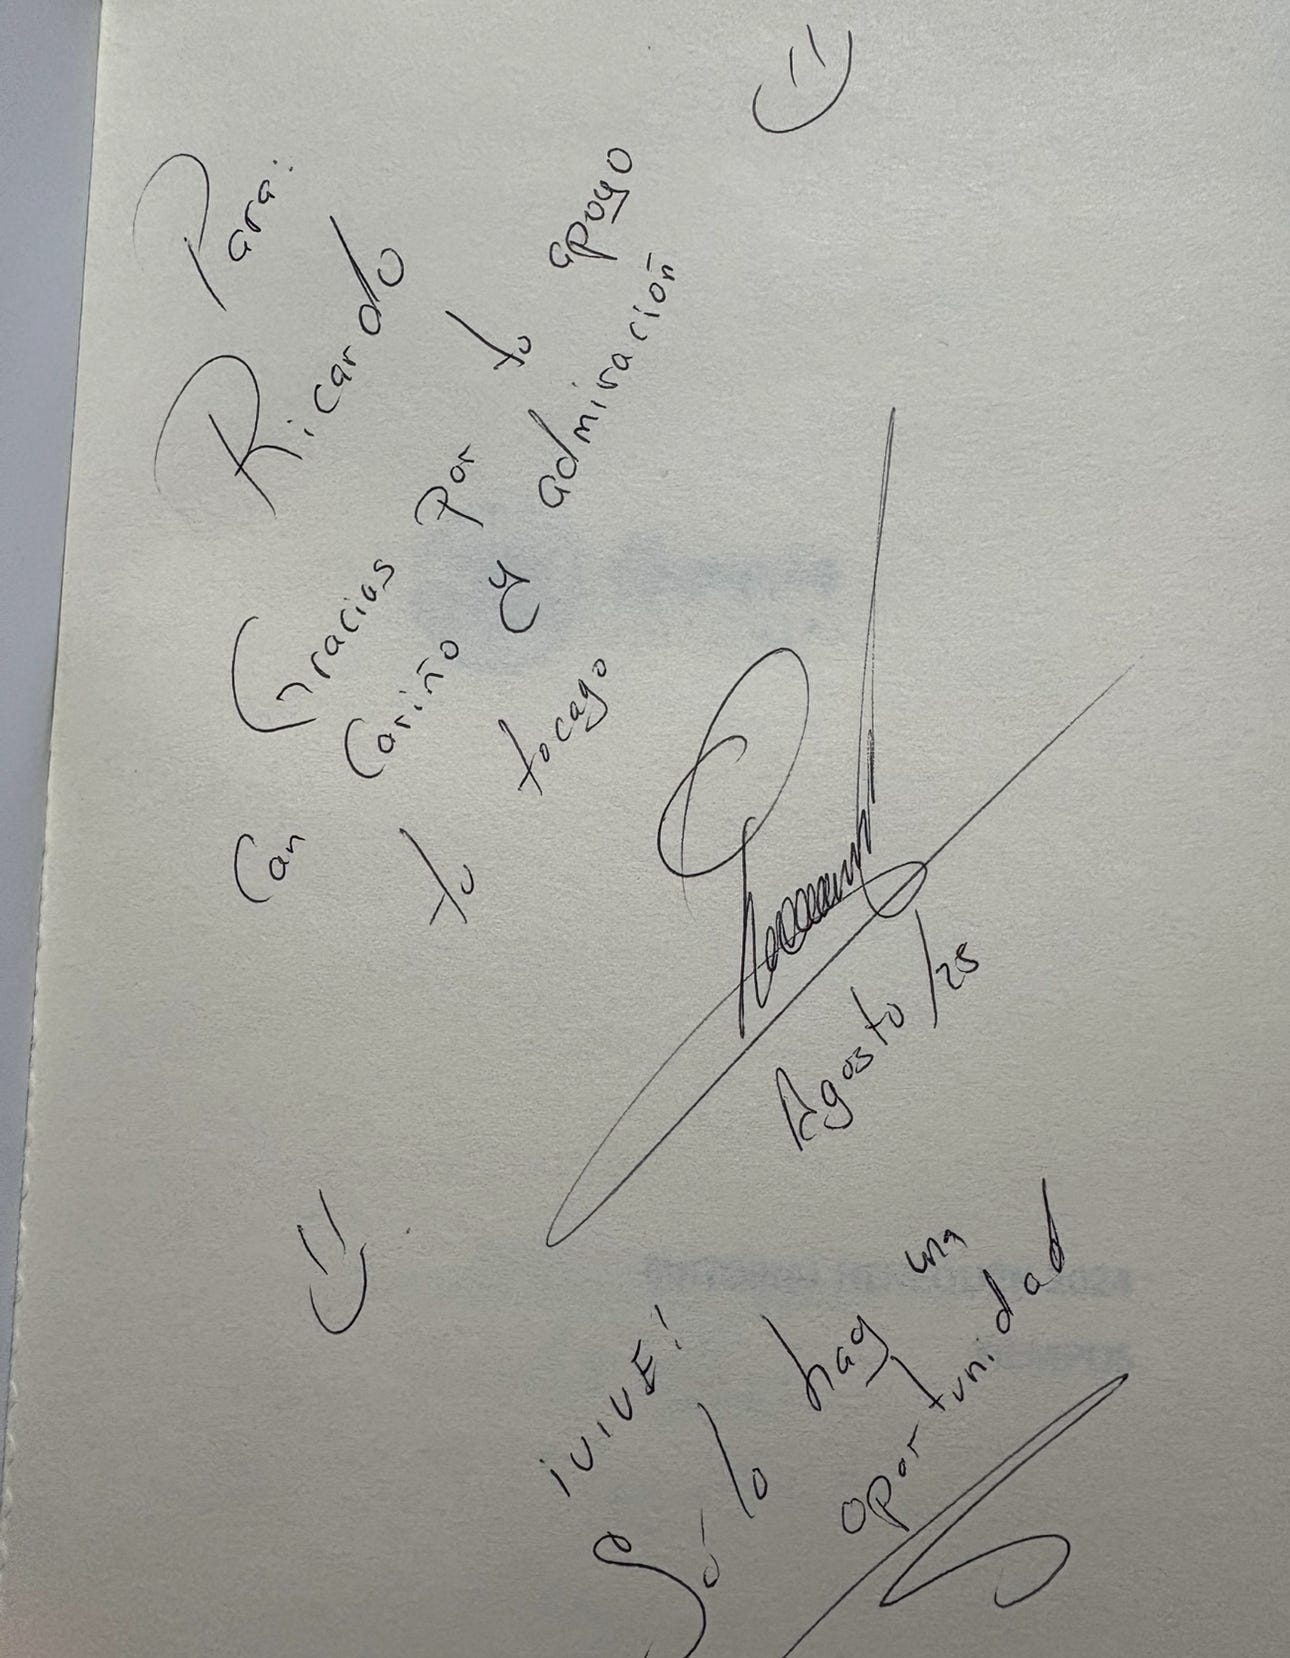 Para:
Ricardo
Gracias por tu apoyo
Con Cariño y admiración
tu tocayo
Agosto/25
¡VIVE!
Sólo hay una
oportunidad